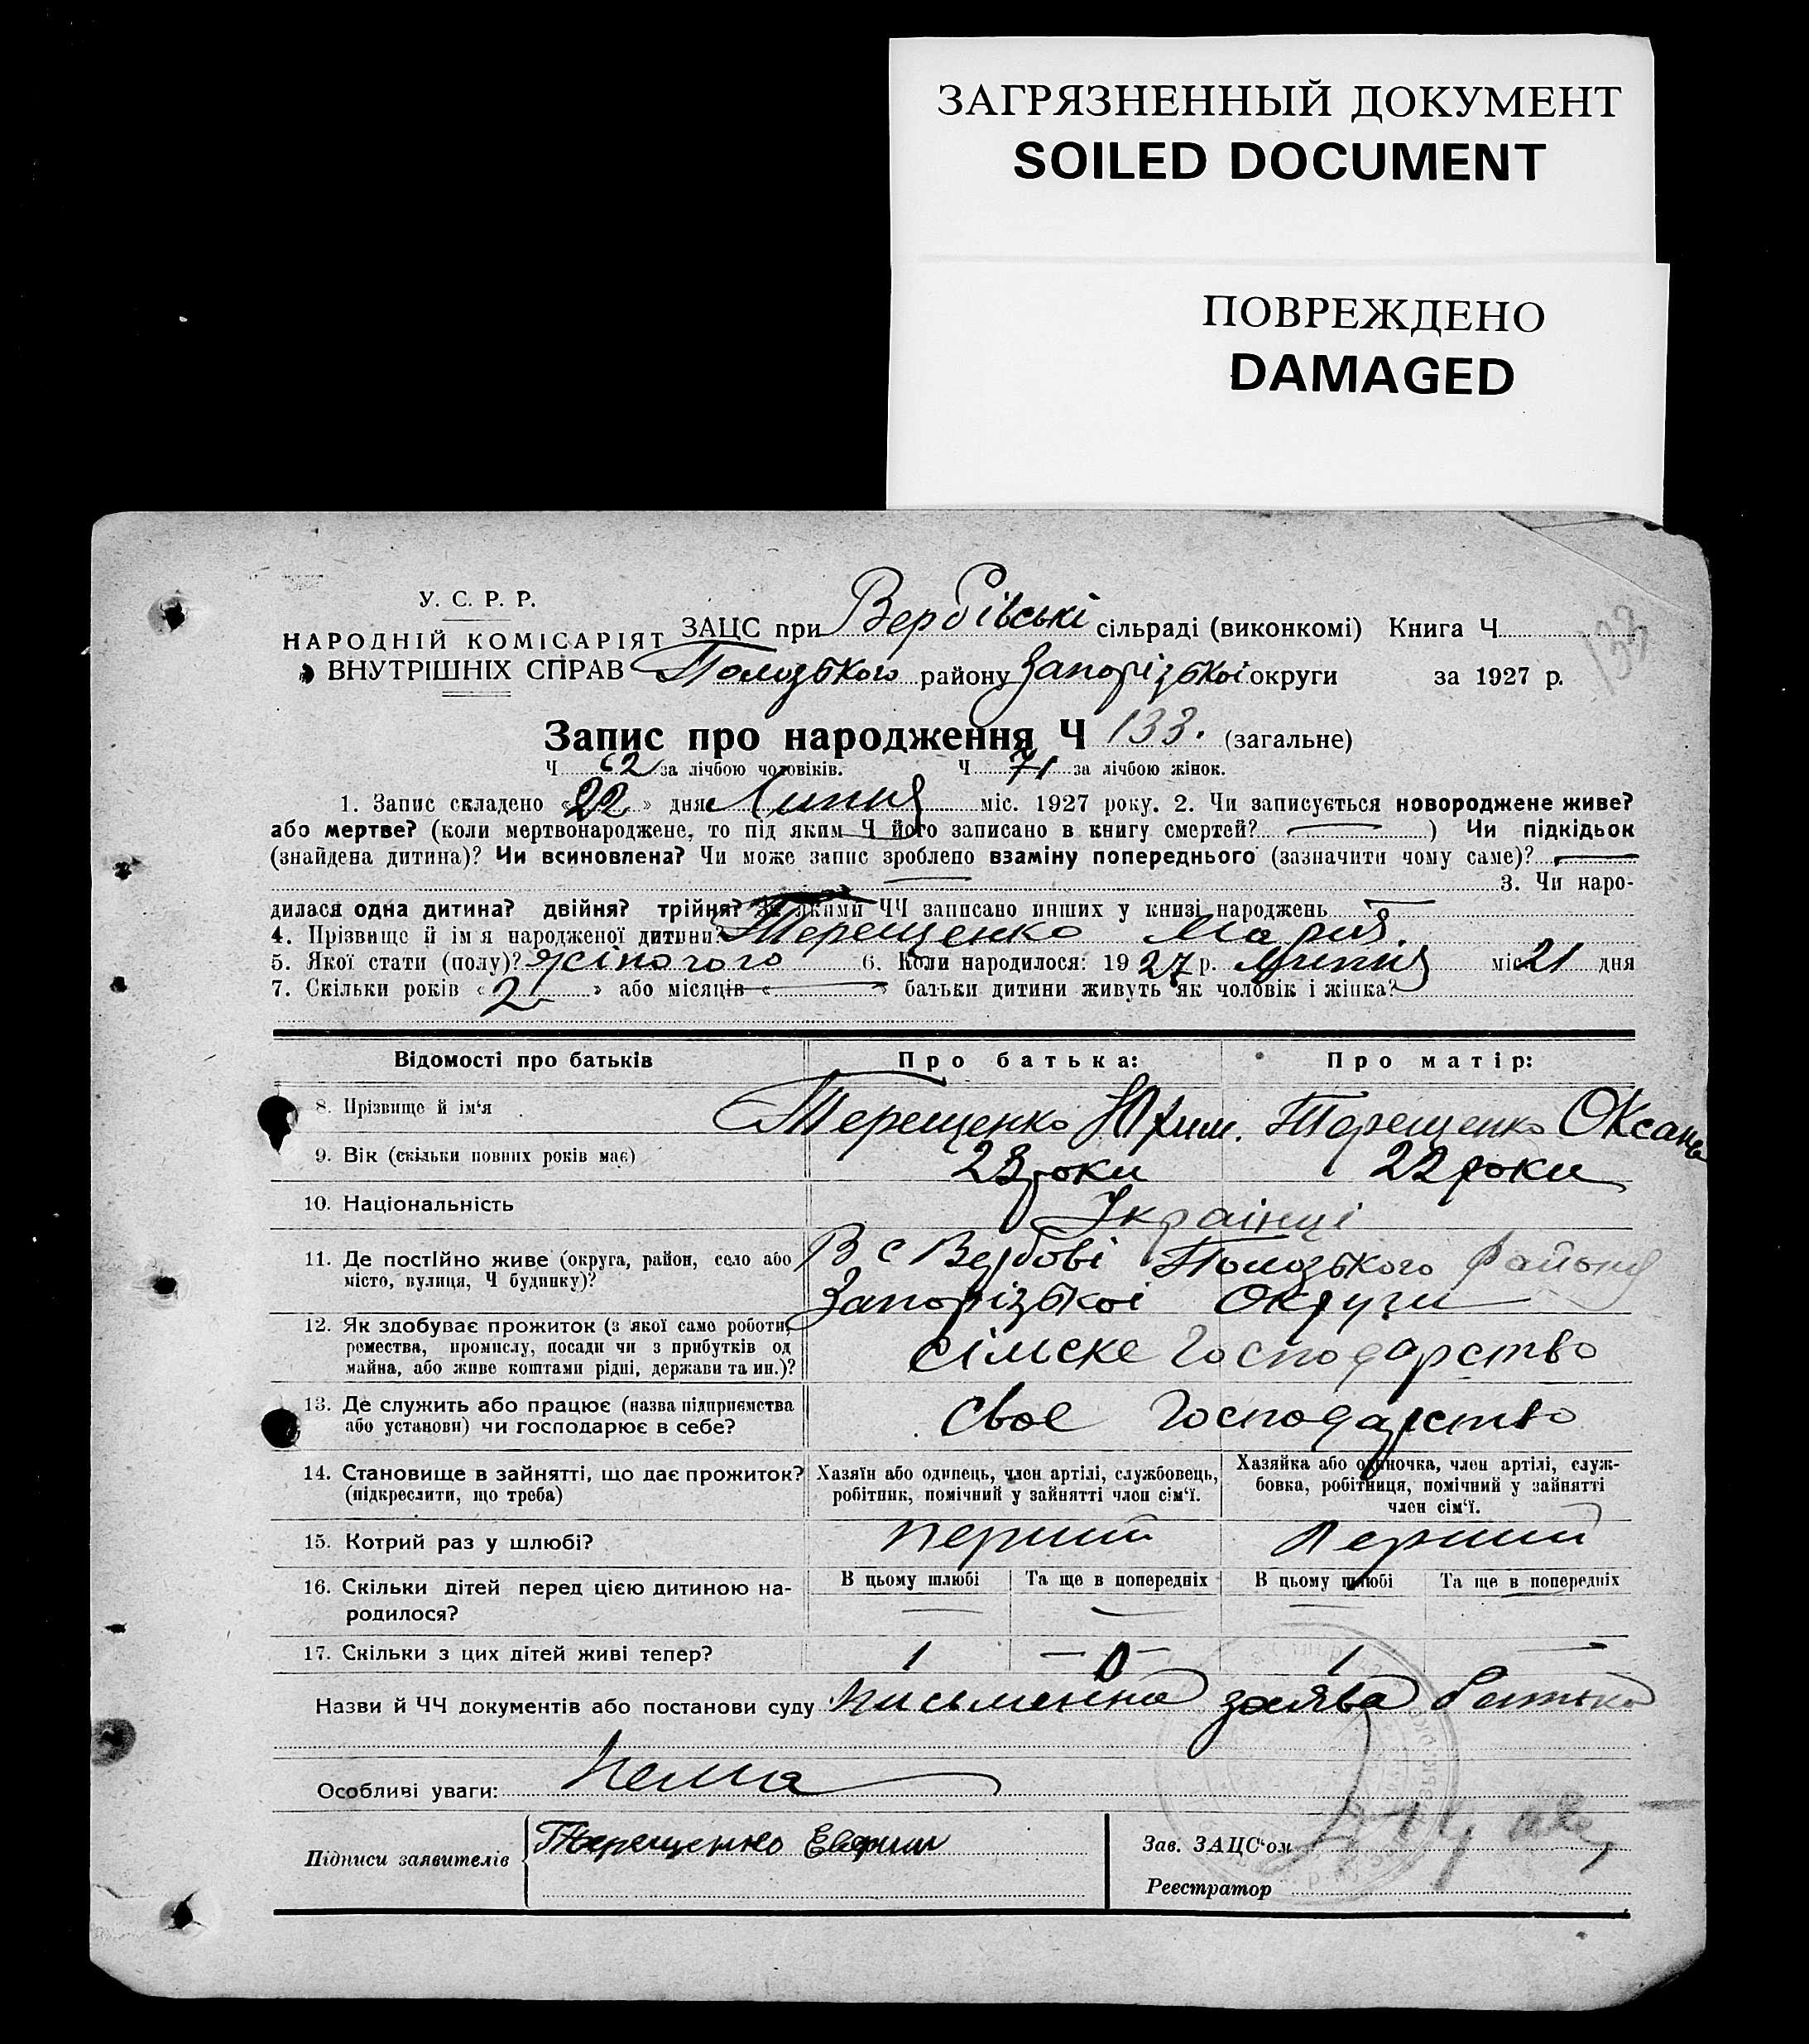 ЗАГРЯЗНЕННЫЙ ДОКУМЕНТ
SOILED DOCUMENT
ПОВРЕЖДЕНО
DAMAGED
У. С. Р. Р.
НАРОДНІЙ КОМІСАРІЯТ
ВНУТРІШНІХ СПРАВ
133
ЗАЦС при Вербівські сільраді (виконкомі) Книга Ч
Полозького району Запорізької округи за 1927 р.
Запис про народження Ч 133. (загальне)
Ч 62 за лічбою чоловіків. Ч 71 за лічбою жінок.
1. Запис складено «22» дня Липня міс. 1927 року. 2. Чи записується новороджене живе?
або мертве? (коли мертвонароджене, то під яким Ч його записано в книгу смертей? — ) Чи підкідьок
(знайдена дитина)? Чи всиновлена? Чи може запис зроблено взаміну попереднього (зазначити чому саме)? —
3. Чи наро-
дилася одна дитина? двійня? трійня? За якими ЧЧ записано инших у книзі народжень —
4. Прізвище й ім я народженої дитини? Терещенко Мария.
5. Якої стати (полу)? жіночого 6. Коли народилося: 1927 р. Липня міс 21 дня
7. Скільки років «2» або місяців «—» батьки дитини живуть як чоловік і жінка?
Відомості про батьків Про батька: Про матір:
8. Прізвище й ім'я Терещенко Юхим. Терещенко Оксана
9. Вік (скільки повних років має) 23 роки 22 роки
10. Національність Українці
11. Де постійно живе (округа, район, село або В с Вербові Полозького району
місто, вулиця, Ч будинку)? Запорізької Округи
12. Як здобуває прожиток (з якої саме роботи,
ремества, промислу, посади чи з прибутків од сільске Господарство
майна, або живе коштами рідні, держави та ин.)?
13. Де служить або працює (назва підприємства своє Господарство
або установи) чи господарює в себе?
14. Становище в зайнятті, що дає прожиток? Хазяїн або одинець, член артілі, службовець, Хазяйка або одиночка, член артілі, служ-
(підкреслити, що треба) робітник, помічний у зайнятті член сім'ї. бовка, робітниця, помічний у зайнятті
член сім'ї.
15. Котрий раз у шлюбі? перший Перший
16. Скільки дітей перед цією дитиною на- В цьому шлюбі Та ще в попередніх В цьому шлюбі Та ще в попередніх
родилося? — — — —
17. Скільки з цих дітей живі тепер? 1 — 1 —
Назви й ЧЧ документів або постанови суду Письменна заява батька
Особливі уваги: Нема
Підписи заявителів Терещенко Евфим
Зав. ЗАЦС'ом
Реєстратор